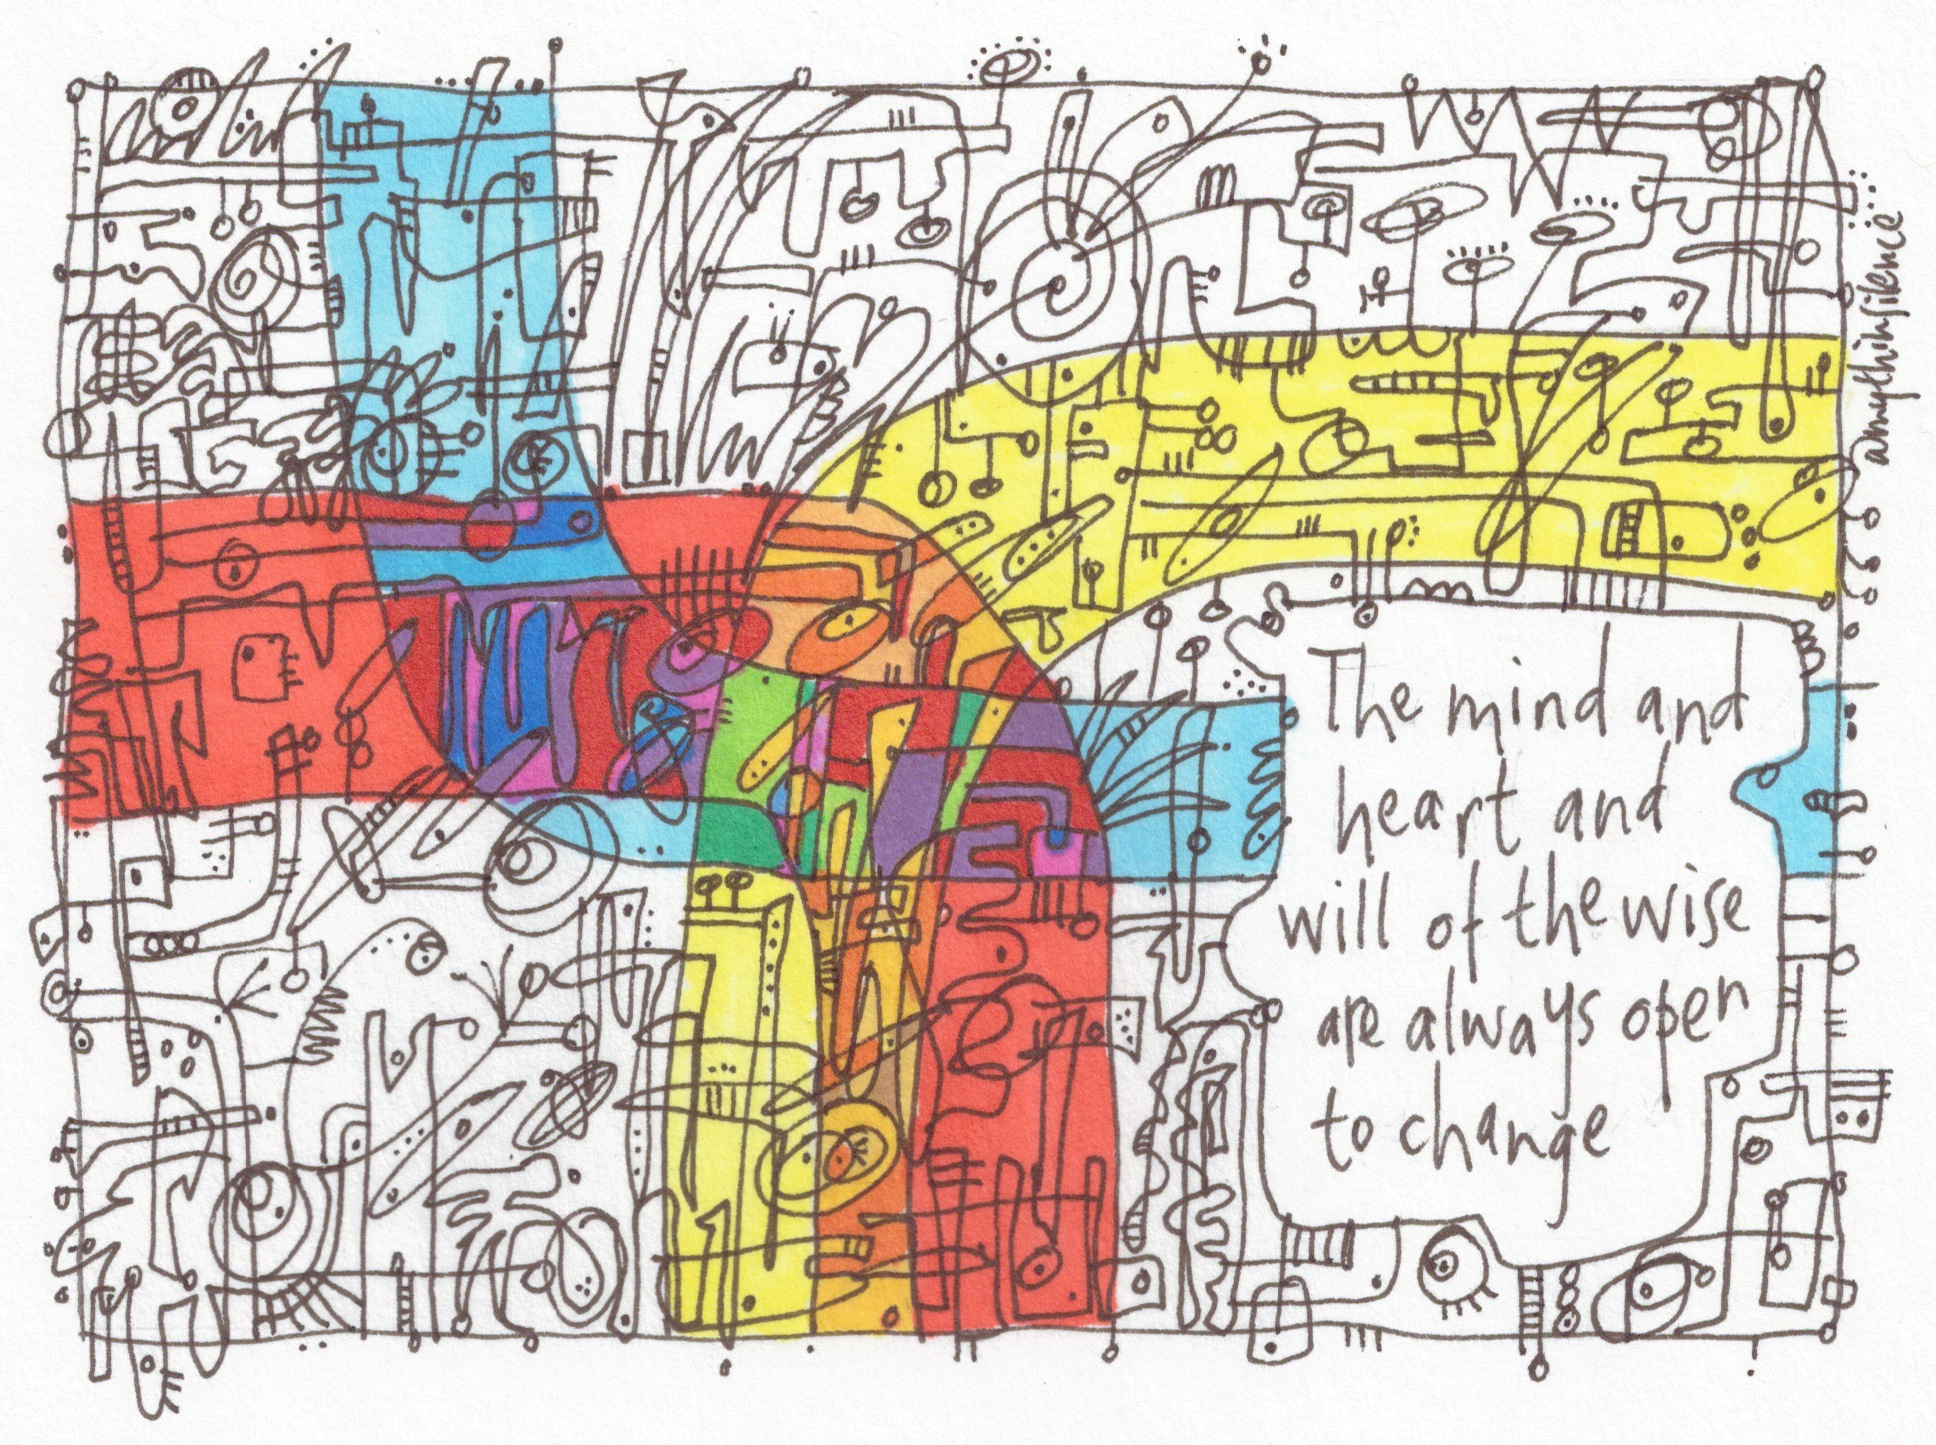 The mind and
heart and
will of the wise
are always open
to change
amythinsilence